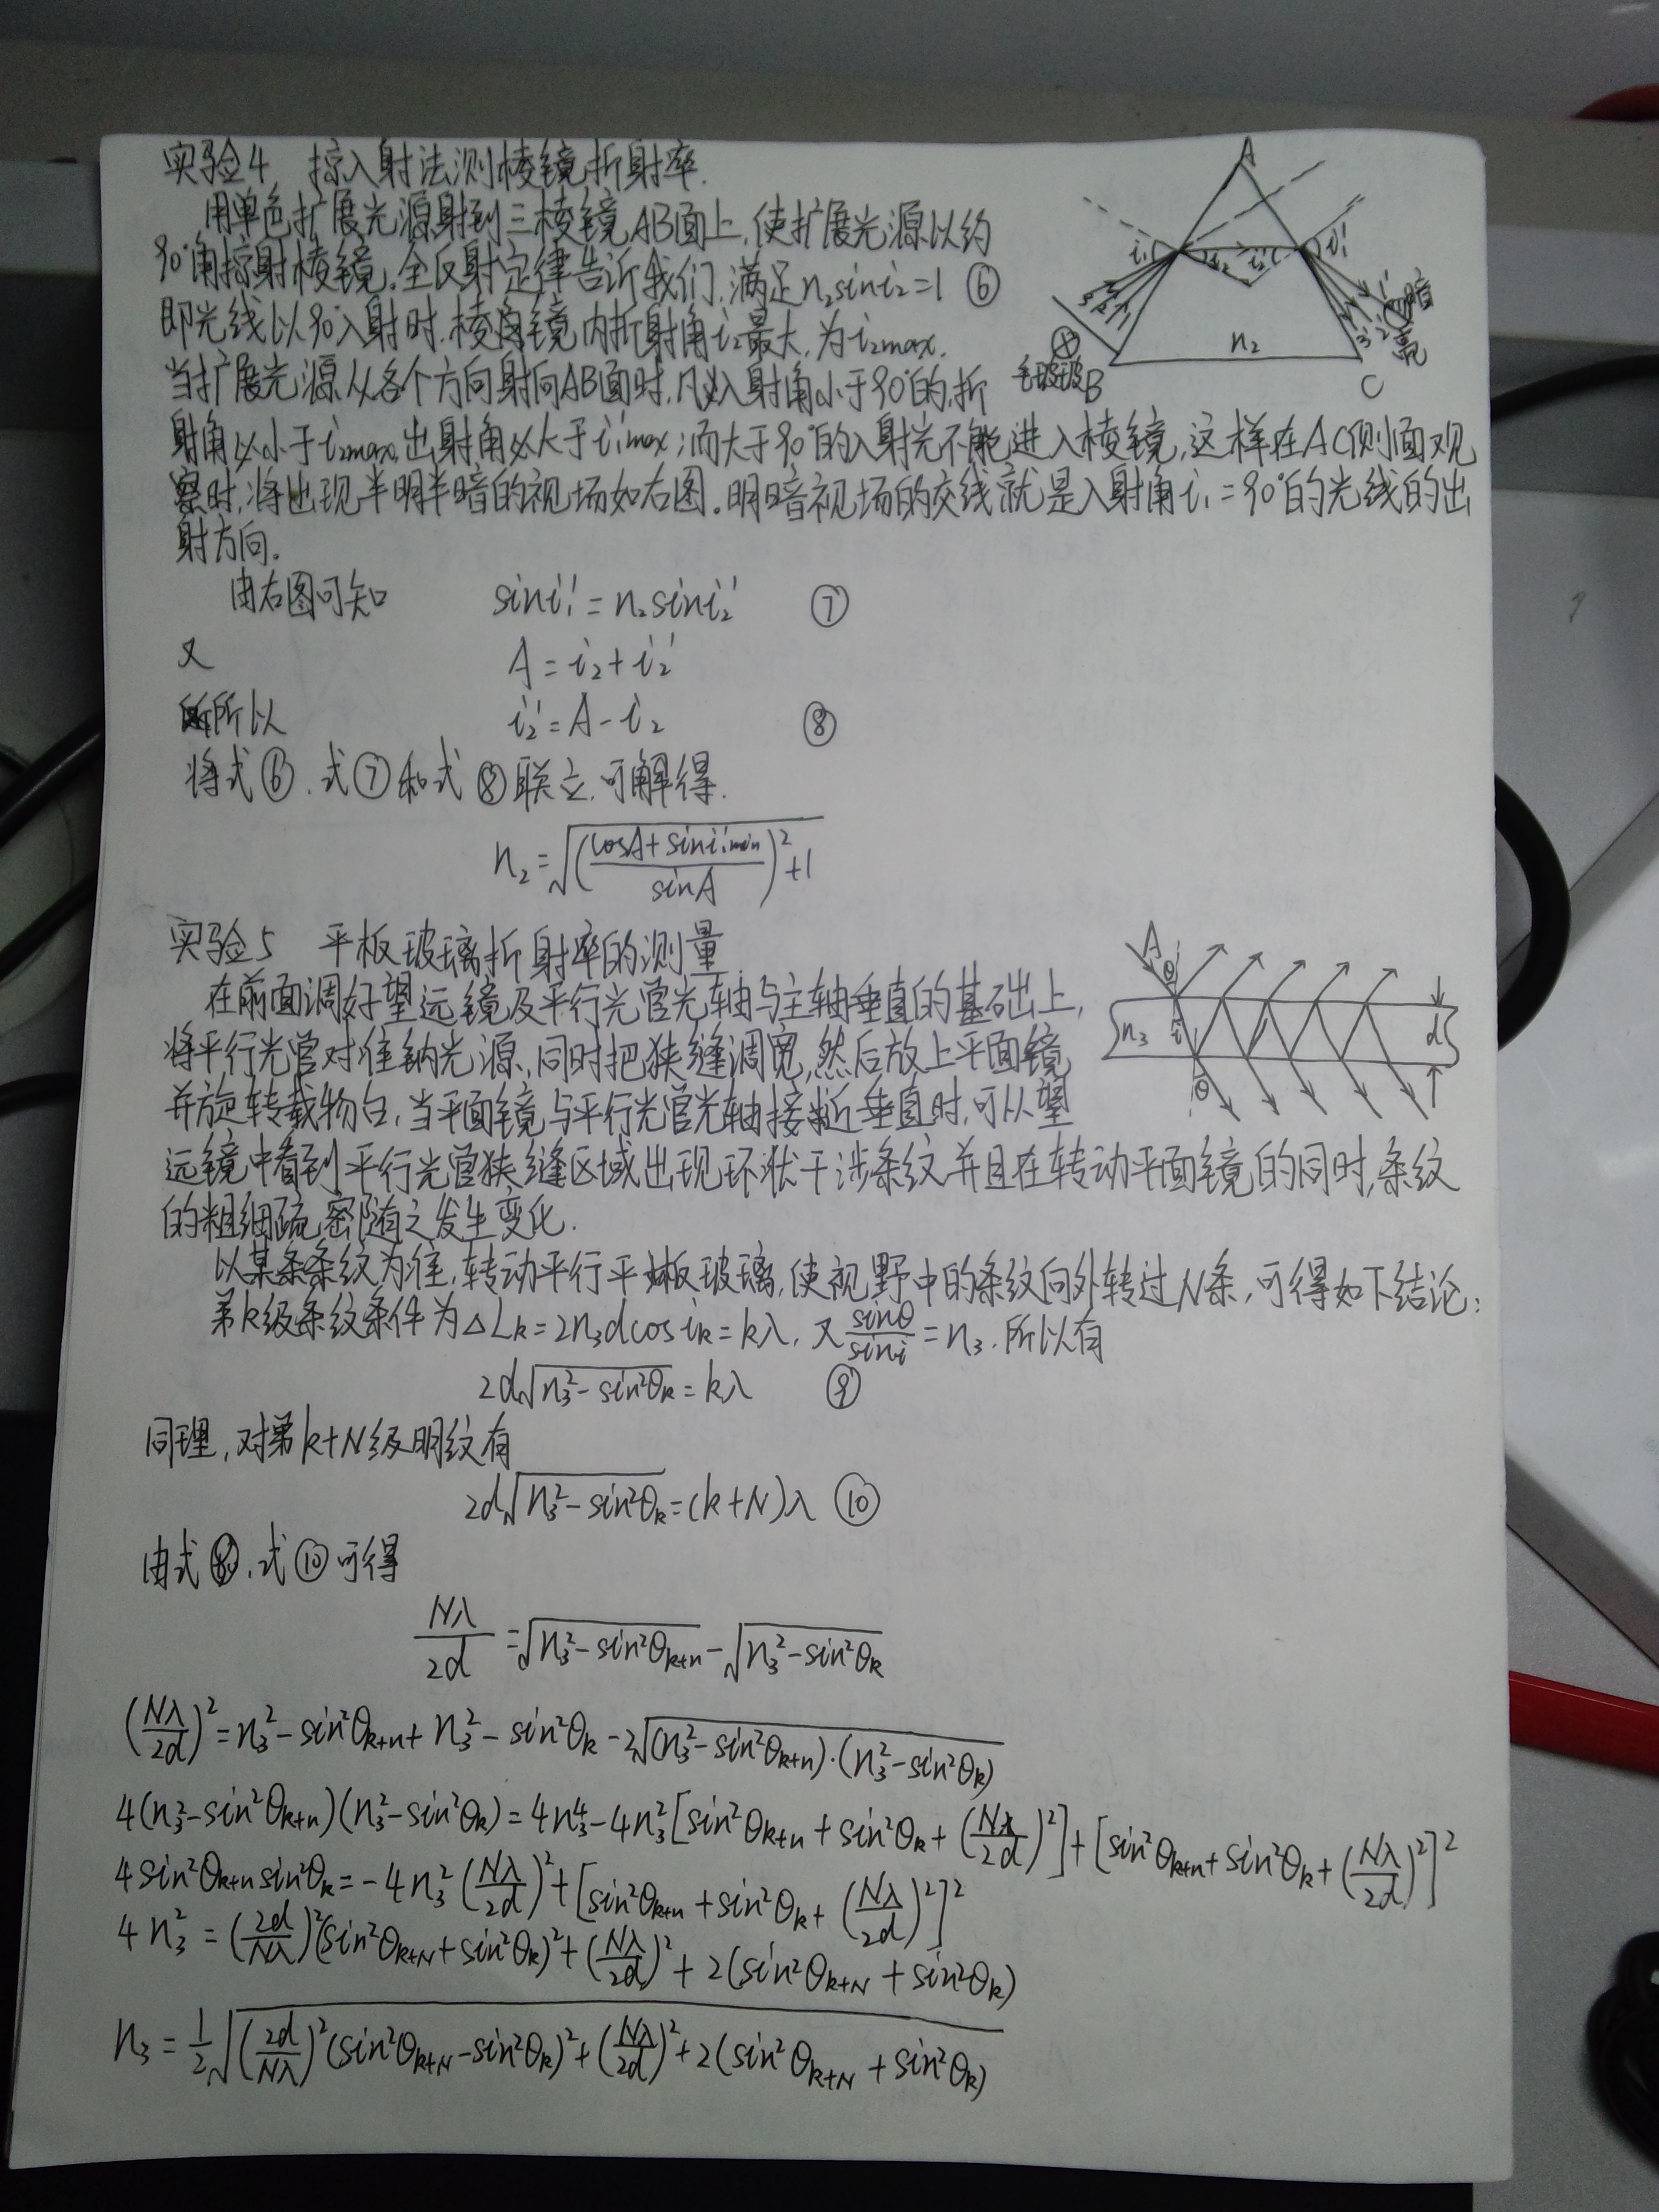 实验4 掠入射法测棱镜折射率.
用单色扩展光源射到三棱镜AB面上,使扩展光源以约
90°角掠射棱镜.全反射定律告诉我们,满足n₂sini₂=1 ⑥
即光线以90°入射时,棱镜内折射角i₂最大,为i₂max.
当扩展光源从各个方向射向AB面时,凡入射角小于90°的,折
射角必小于i₂max,出射角必大于i₁'max;而大于90°的入射光不能进入棱镜,这样在AC侧面观
察时,将出现半明半暗的视场如右图.明暗视场的交线就是入射角i₁=90°的光线的出
射方向.
A
i₁
i₂
i₂'
i₁'
1
2
3
暗
亮
毛玻璃
B
n₂
C
由右图可知 sini₁'=n₂sini₂' ⑦
又 A=i₂+i₂'
所以 i₂'=A-i₂ ⑧
将式⑥.式⑦和式⑧联立,可解得.
n₂=√(((cosA+sini₁min)/sinA)²+1)
实验5 平板玻璃折射率的测量
在前面调好望远镜及平行光管光轴与主轴垂直的基础上,
将平行光管对准钠光源,同时把狭缝调宽,然后放上平面镜
并旋转载物台,当平面镜与平行光管光轴接近垂直时,可以望
远镜中看到平行光管狭缝区域出现环状干涉条纹并且在转动平面镜的同时,条纹
的粗细疏密随之发生变化.
A
θ
n₃
i
θ
d
以某条条纹为准,转动平行平板玻璃,使视野中的条纹向外转过N条,可得如下结论:
第k级条纹条件为△Lk=2n₃dcosik=kλ, 又sinθ/sini=n₃.所以有
2d√(n₃²-sin²θk)=kλ ⑨
同理,对第k+N级明纹有
2d√(n₃²-sin²θk)=(k+N)λ ⑩
由式⑨.式⑩可得
Nλ/2d=√(n₃²-sin²θk+n)-√(n₃²-sin²θk)
(Nλ/2d)²=n₃²-sin²θk+n+n₃²-sin²θk-2√((n₃²-sin²θk+n)·(n₃²-sin²θk))
4(n₃²-sin²θk+n)(n₃²-sin²θk)=4n₃⁴-4n₃²[sin²θk+n+sin²θk+(Nλ/2d)²]+[sin²θk+n+sin²θk+(Nλ/2d)²]²
4sin²θk+n sin²θk=-4n₃²(Nλ/2d)²+[sin²θk+n+sin²θk+(Nλ/2d)²]²
4n₃²=(2d/Nλ)²(sin²θk+N+sin²θk)²+(Nλ/2d)²+2(sin²θk+N+sin²θk)
n₃=1/2√((2d/Nλ)²(sin²θk+N-sin²θk)²+(Nλ/2d)²+2(sin²θk+N+sin²θk))